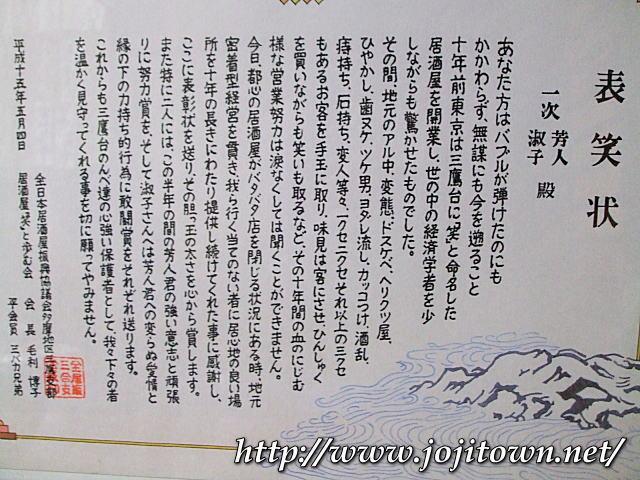 表笑状
一次 芳人
淑子 殿
あなた方はバブルが弾けたのにも
かかわらず、無謀にも今を遡ること
十年前東京は三鷹台に「笑」と命名した
居酒屋を開業し、世の中の経済学者を少
しながらも驚かせたものでした。
その間、地元のアル中、変態、ドスケベ、ヘリクツ屋、
ひやかし、歯ヌケ、ヅケ男、ヨダレ流し、カッコつけ、酒乱、
痔持ち、石持ち、変人等々、一クセ二クセそれ以上の三クセ
もあるお客を手玉に取り、味見は客にさせ、ひんしゅく
を買いながらも笑いも取るなど、その十年間の血のにじむ
様な営業努力は涙なくしては聞くことができません。
今日、都心の居酒屋がバタバタ店を閉じる状況にある時、地元
密着型経営を貫き、我ら行く当てのない者に居心地の良い場
所を十年の長きにわたり提供し続けてくれた事に感謝し、
ここに表彰状を送り、その胆っ玉の太さを心から賞します。
また特に二人には、この半年の間の芳人君の強い意志と頑張
りに努力賞を、そして淑子さんへは芳人君への変らぬ愛情と
縁の下の力持ち的行為に敢闘賞をそれぞれ送ります。
これからも三鷹台のんべ達の心強い保護者として、我々下々の者
を温かく見守ってくれる事を切に願ってやみません。
平成十五年五月四日
全日本居酒屋振興協議会多摩地区三鷹支部
居酒屋「笑」と歩む会 会長 毛利 博子
平会員 三バカ兄弟
http://www.jojitown.net/